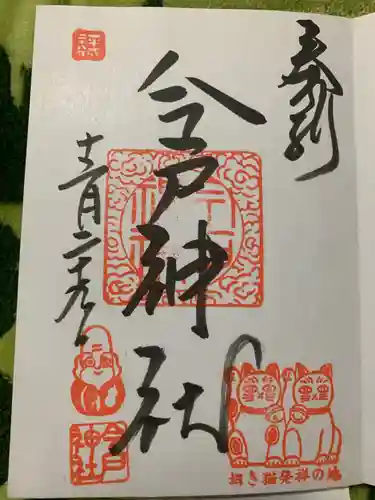 奉拝
今戸神社
十二月二十九日
今戸
神社
招き猫発祥の地